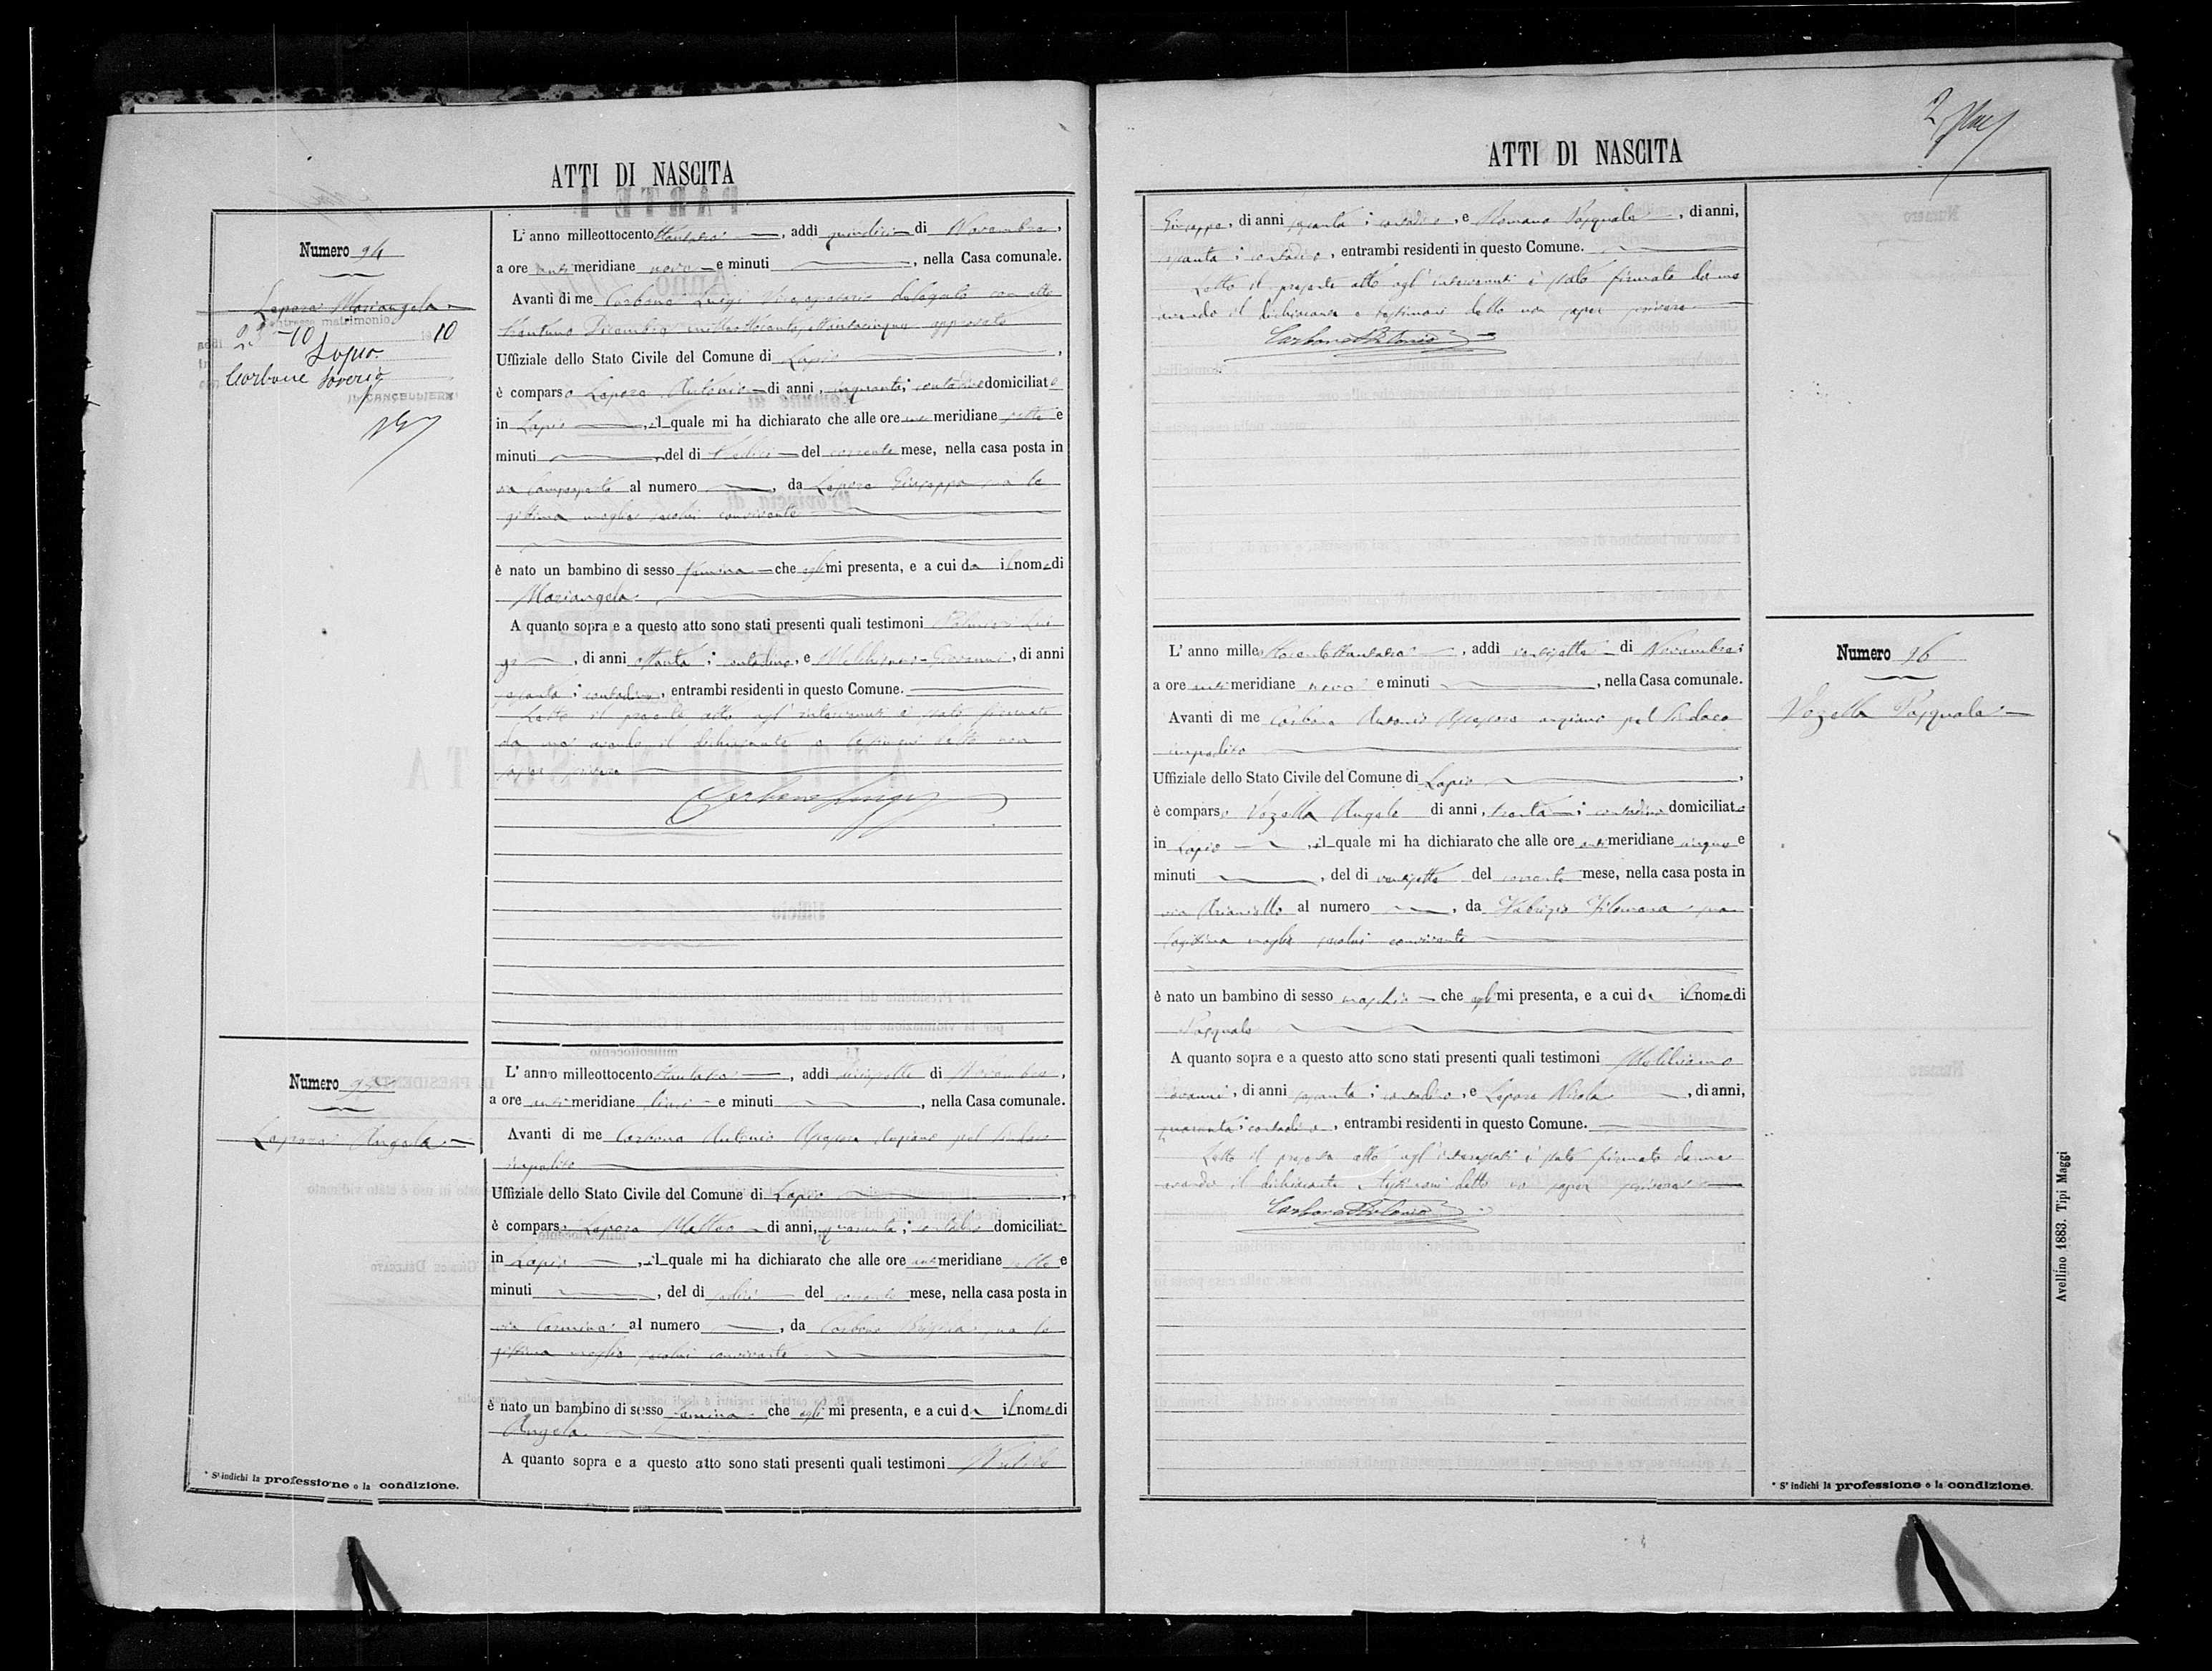 ATTI DI NASCITA
Numero 94
Lepore Mariangela
contrasse matrimonio
22 - 10 1910
Lapio
Carbone Saverio
IL CANCELLIERE
L'anno milleottocento , addì quindici di Novembre,
a ore anti meridiane nove e minuti , nella Casa comunale.
Avanti di me Carbone Luigi Segretario delegato con atto
trentuno Dicembre approvato
Uffiziale dello Stato Civile del Comune di Lapio ,
è comparso Lepore Antonio di anni cinquanta; contadino domiciliato
in Lapio , il quale mi ha dichiarato che alle ore meridiane sette e
minuti , del dì tredici del corrente mese, nella casa posta in
via al numero , da Lepore Giuseppa sua le
gittima moglie secolui convivente
è nato un bambino di sesso femina che egli mi presenta, e a cui da il nome di
Mariangela
A quanto sopra e a questo atto sono stati presenti quali testimoni Lui
gi , di anni ottanta; contadino, e Giovanni, di anni
sessanta; contadino, entrambi residenti in questo Comune.
Letto il presente atto agl'intervenuti è stato firmato
da me avendo il dichiarante e testimoni detto non
saper scrivere
Carbone Luigi
Numero 95
Lepore Angela
L'anno milleottocento , addì diciasette di Novembre,
a ore anti meridiane dieci e minuti , nella Casa comunale.
Avanti di me Carbone Antonio Assessore anziano pel Sindaco
impedito
Uffiziale dello Stato Civile del Comune di Lapio ,
è comparso Lepore Matteo di anni quaranta; contadino domiciliato
in Lapio , il quale mi ha dichiarato che alle ore anti meridiane sette e
minuti , del dì sedici del corrente mese, nella casa posta in
via Carmine al numero , da Carbone sua le
gittima moglie secolui convivente
è nato un bambino di sesso femina che egli mi presenta, e a cui da il nome di
Angela
A quanto sopra e a questo atto sono stati presenti quali testimoni
* S'indichi la professione o la condizione.
ATTI DI NASCITA
Giuseppe, di anni sessanta; contadino, e Romano Pasquale , di anni,
sessanta; contadino, entrambi residenti in questo Comune.
Letto il presente atto agl'intervenuti è stato firmato da me
avendo il dichiarante e testimoni detto non saper scrivere
Carbone Antonio
L'anno mille , addì ventisette di Novembre;
a ore anti meridiane nove e minuti , nella Casa comunale.
Avanti di me Carbone Antonio Assessore anziano pel Sindaco
impedito
Uffiziale dello Stato Civile del Comune di Lapio ,
è comparso Vozella Angelo di anni, trenta; contadino domiciliato
in Lapio , il quale mi ha dichiarato che alle ore anti meridiane cinque e
minuti , del dì ventisette del corrente mese, nella casa posta in
via Arianiello al numero , da Fabrizio Filomena sua
legittima moglie secolui convivente
è nato un bambino di sesso maschio che egli mi presenta, e a cui da il nome di
Pasquale
A quanto sopra e a questo atto sono stati presenti quali testimoni
Giovanni, di anni sessanta; contadino, e Lepore Nicola , di anni,
quaranta; contadino, entrambi residenti in questo Comune.
Letto il presente atto agl'intervenuti è stato firmato da me
avendo il dichiarante e testimoni detto non saper scrivere
Carbone Antonio
Numero 96
Vozella Pasquale
* S'indichi la professione o la condizione.
Avellino 1883. Tipi Maggi